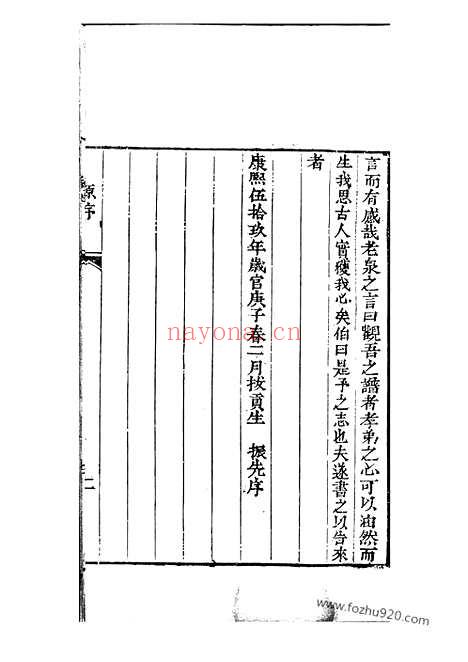 言而有感哉老泉之言曰觀吾之譜者孝弟之心可以油然而
生我思古人實獲我心矣伯曰是予之志也夫遂書之以告來
者
康熙伍拾玖年歲官庚子春二月拔貢生 振先序
原序
二
nayona.cn
www.fozhu920.com